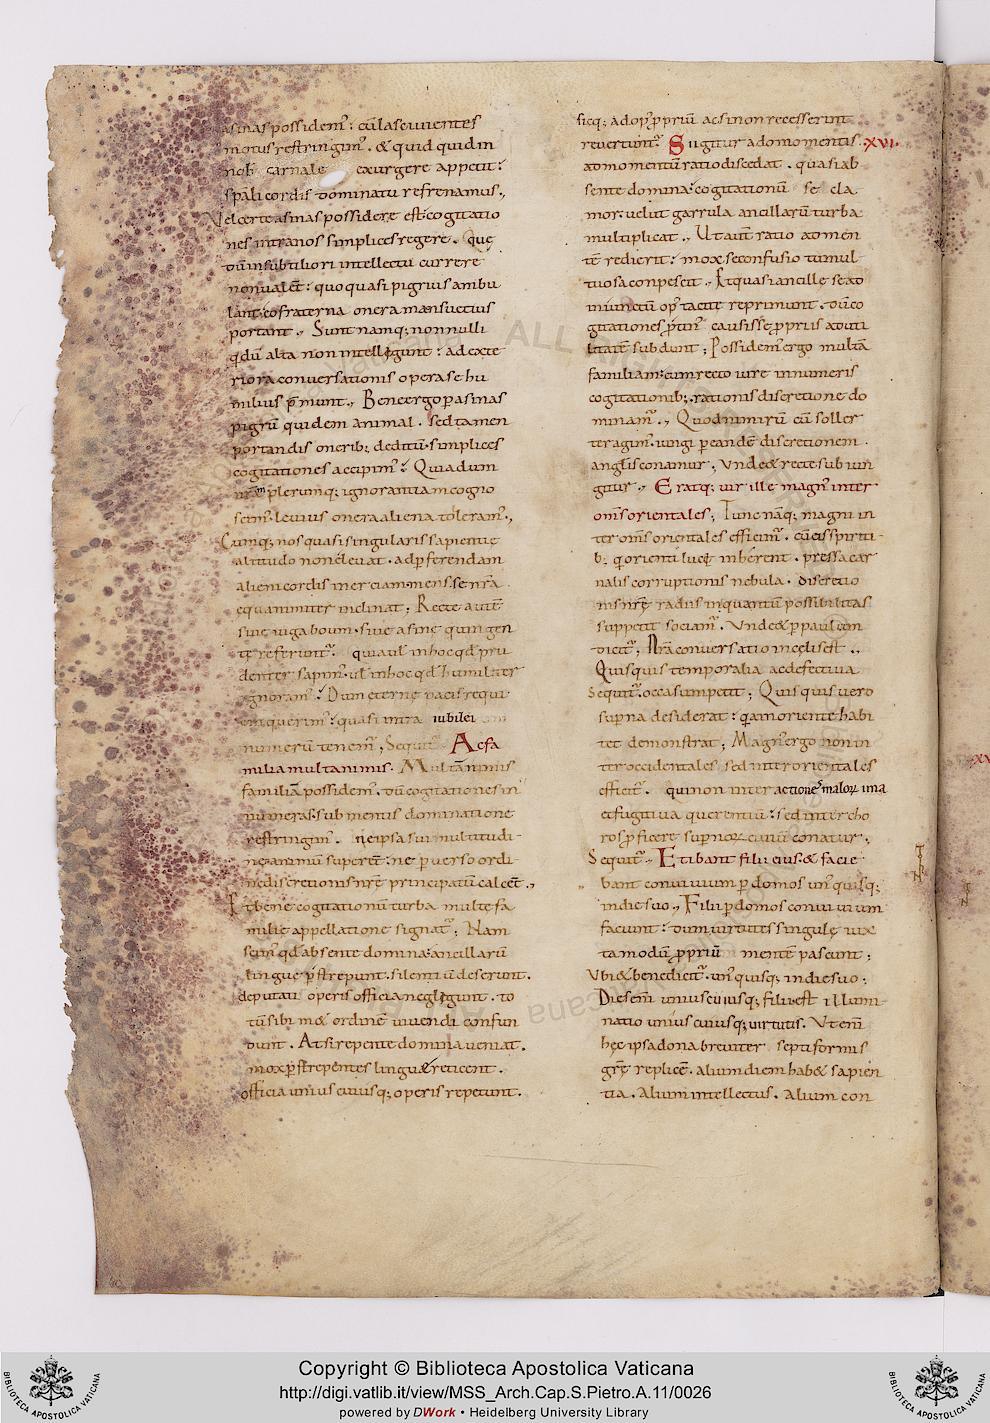 asinas possidem᷒: cũ lasciuientes
motus restringim᷒. & quid quid in
nob carnale exurgere appetit:
spãli cordis dominatu refrenamus.,
Vel certe asinas possidere est: cogitatio
nes intra nos simplices regere. Quę
dũ in subtiliori intellectu currere
non ualent: quo quasi pigrius ambu
lant: eo fraterna onera mansuetius
portant., Sunt namq; nonnulli
qđũ alta non intellegunt: ad exte
riora conuersationis opera se hu
milius p̃munt., Bene ergo p asinas
pigrũ quidem animal. sed tamen
portandis onerib; deditũ. simplices
cogitationes accipim᷒: Quia dum
nrãm plerunq; ignorantiam cogno
scim᷒. leuius onera aliena toleram᷒.,
Cumq; nos quasi singularis sapientię
altitudo non eleuat. ad pferendam
alieni cordis inerciam. mens se nrã
equanimiter inclinat; Recte autẽ
siue iuga boum. siue asine quingen
tę referunt᷒: quia uł in hoc qđ pru
denter sapim᷒. uł in hoc qđ humiliter
ignoram᷒: Dum eterne pacis requi
em querim᷒: quasi intra iubilei
numerũ tenem᷒; Sequit᷒ Ac fa
milia multa nimis. Multã nimis
familiã possidem᷒. dũ cogitationes in
numeras: sub mentis dominatione
restringim᷒. ne ipsa sui multitudi
ne animũ superent: ne p uerso ordi
ne discretionis nrę principatũ calcent.,
Et bene cogitationũ turba multę fa
milie appellatione signat᷒; Nam
scim᷒ qđ absente domina: ancillarũ
linguę pstrepunt. silentiũ deserunt.
deputati operis officia neglegunt. to
tũ sibi in & ordinẽ uiuendi confun
dunt. At si repente domina ueniat.
mox pstrepentes linguę reticent.
officia unius cuiusq; operis repetunt.
sicq; ad op᷒ ppriũ ac si non recesserint
reuertunt᷒: Si igitur a domo mentis XVI.
ad momentũ ratio discedat. quasi ab
sente domina: cogitationũ se cla
mor: uelut garrula ancillarũ turba
multiplicat., Ut aut̃ ratio ad men
tẽ redierit: mox se confusio tumul
tuosa conpescit., Et quasi ancille se ad
iniunctũ op᷒ tacite reprimunt. dũ co
gitationes ptin᷒ causis se ppriis ad uti
litatẽ subdunt; Possidem᷒ ergo multã
familiam: cum recto iure innumeris
cogitationib; rationis discretione do
minam᷒., Quod nimirũ cũ soller
ter agim᷒. iungi p eandẽ discretionem
angłis conamur, Vnde & recte sub iun
gitur., Eratq; uir ille magn᷒ inter
oms orientales; Tunc nãq; magni in
ter oms orientales efficim᷒. cũ eis spirti
b; q orienti lucę inherent. pressa car
nalis corruptionis nebula. discretio
nis nrę radiis in quantũ possibilitas
suppetit sociam᷒. Vnde & p paulum
dicit᷒; Nrã conuersatio in cęlis est.,
Quisquis temporalia ac defectiua
sequit᷒. occasum petit; Quisquis uero
supna desiderat: q̃ in oriente habi
tet demonstrat; Magn᷒ ergo non in
ter occidentales sed inter orientales
efficit᷒. qui non inter actiones malorũ ima
et fugitiua querentiũ: sed inter cho
ros pficere supnorũ ciuiũ conatur;
Sequit᷒., Et ibant filii eius & facie
bant conuiuium p domos un᷒quisq;
in die suo., Filii p domos conuiuium
faciunt: dum uirtutes singulę iux
ta modũ ppriũ mentẽ pascunt;
Vbi & bene dicit᷒. un᷒quisq; in die suo;
Dies enĩ uniuscuiusq; filii est illumi
natio uniuscuiusq; uirtutis. Vt enĩ
hęc ipsa dona breuiter septiformis
grę replicẽ. alium diem hab& sapien
tia. alium intellectus. alium con
Copyright © Biblioteca Apostolica Vaticana
http://digi.vatlib.it/view/MSS_Arch.Cap.S.Pietro.A.11/0026
powered by DWork • Heidelberg University Library